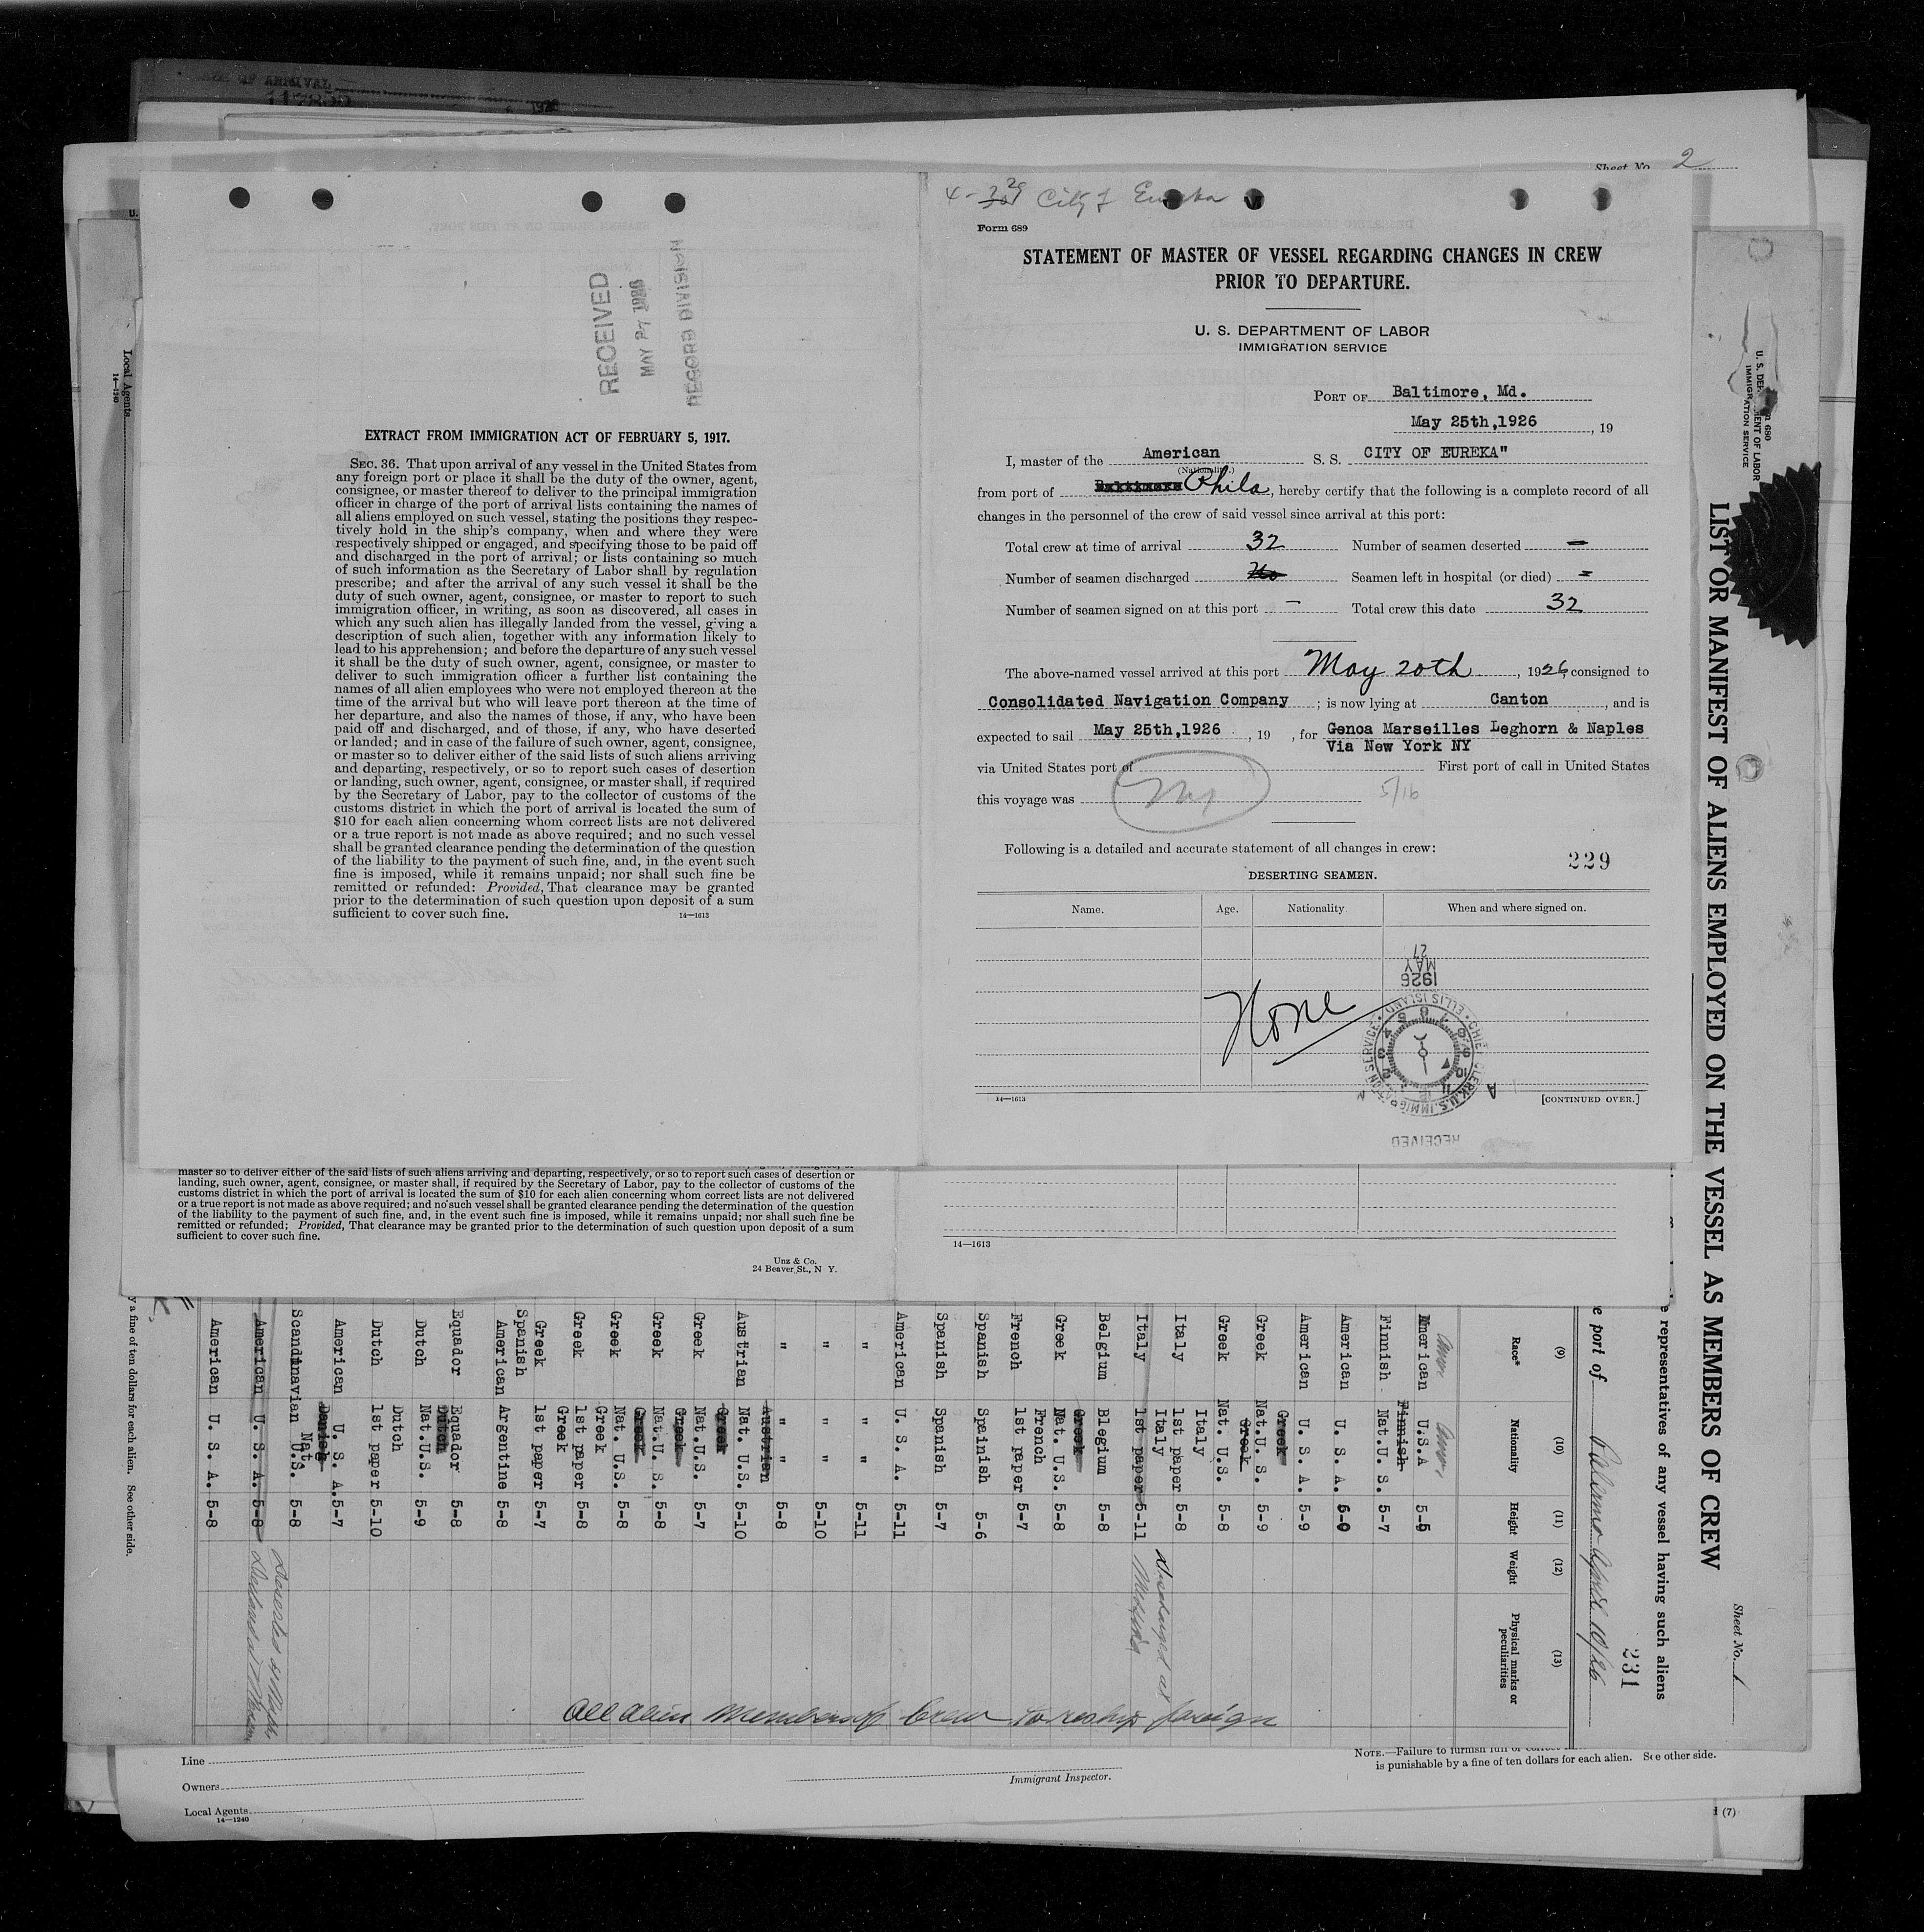 OF ARRIVAL
117855
Sheet No. 2
4-29 City of Eureka
Form 689
STATEMENT OF MASTER OF VESSEL REGARDING CHANGES IN CREW
PRIOR TO DEPARTURE.
U. S. DEPARTMENT OF LABOR
IMMIGRATION SERVICE
PORT OF Baltimore, Md.
May 25th,1926, 19
I, master of the American S. S. CITY OF EUREKA"
(Nationality.)
from port of Baltimore Phila, hereby certify that the following is a complete record of all
changes in the personnel of the crew of said vessel since arrival at this port:
Total crew at time of arrival 32 Number of seamen deserted —
Number of seamen discharged No Seamen left in hospital (or died) —
Number of seamen signed on at this port — Total crew this date 32
The above-named vessel arrived at this port May 20th, 1926, consigned to
Consolidated Navigation Company; is now lying at Canton, and is
expected to sail May 25th,1926, 19 , for Genoa Marseilles Leghorn & Naples
Via New York NY
via United States port of First port of call in United States
this voyage was NY 5/16
Following is a detailed and accurate statement of all changes in crew:
229
DESERTING SEAMEN.
Name. Age. Nationality When and where signed on.
None
1926 MAY 27
CHIEF CLERK, U.S. IMMIGRATION SERVICE · ELLIS ISLAND ·
RECEIVED
14—1613
[CONTINUED OVER.]
RECEIVED
MAY 27 1926
RECORD DIVISION
EXTRACT FROM IMMIGRATION ACT OF FEBRUARY 5, 1917.
SEC. 36. That upon arrival of any vessel in the United States from
any foreign port or place it shall be the duty of the owner, agent,
consignee, or master thereof to deliver to the principal immigration
officer in charge of the port of arrival lists containing the names of
all aliens employed on such vessel, stating the positions they respec-
tively hold in the ship's company, when and where they were
respectively shipped or engaged, and specifying those to be paid off
and discharged in the port of arrival; or lists containing so much
of such information as the Secretary of Labor shall by regulation
prescribe; and after the arrival of any such vessel it shall be the
duty of such owner, agent, consignee, or master to report to such
immigration officer, in writing, as soon as discovered, all cases in
which any such alien has illegally landed from the vessel, giving a
description of such alien, together with any information likely to
lead to his apprehension; and before the departure of any such vessel
it shall be the duty of such owner, agent, consignee, or master to
deliver to such immigration officer a further list containing the
names of all alien employees who were not employed thereon at the
time of the arrival but who will leave port thereon at the time of
her departure, and also the names of those, if any, who have been
paid off and discharged, and of those, if any, who have deserted
or landed; and in case of the failure of such owner, agent, consignee,
or master so to deliver either of the said lists of such aliens arriving
and departing, respectively, or so to report such cases of desertion
or landing, such owner, agent, consignee, or master shall, if required
by the Secretary of Labor, pay to the collector of customs of the
customs district in which the port of arrival is located the sum of
$10 for each alien concerning whom correct lists are not delivered
or a true report is not made as above required; and no such vessel
shall be granted clearance pending the determination of the question
of the liability to the payment of such fine, and, in the event such
fine is imposed, while it remains unpaid; nor shall such fine be
remitted or refunded: Provided, That clearance may be granted
prior to the determination of such question upon deposit of a sum
sufficient to cover such fine.
14—1613
master so to deliver either of the said lists of such aliens arriving and departing, respectively, or so to report such cases of desertion or
landing, such owner, agent, consignee, or master shall, if required by the Secretary of Labor, pay to the collector of customs of the
customs district in which the port of arrival is located the sum of $10 for each alien concerning whom correct lists are not delivered
or a true report is not made as above required; and no such vessel shall be granted clearance pending the determination of the question
of the liability to the payment of such fine, and, in the event such fine is imposed, while it remains unpaid; nor shall such fine be
remitted or refunded; Provided, That clearance may be granted prior to the determination of such question upon deposit of a sum
sufficient to cover such fine.
Unz & Co.
24 Beaver St., N Y.
14—1613
Local Agents
14—1240
U. S. DEPARTMENT OF LABOR
IMMIGRATION SERVICE
LIST OR MANIFEST OF ALIENS EMPLOYED ON THE VESSEL AS MEMBERS OF CREW
Sheet No. 1
e representatives of any vessel having such aliens
231
e port of Palermo April 10/26
(9) (10) (11) (12) (13)
Race* Nationality Height Weight Physical marks or peculiarities
American U.S.A 5-5
Finnish Finnish Nat.U. S. 5-7
American U. S. A. 5-9
American U. S. A. 5-9
Greek Greek Nat.U. S. 5-9
Greek Greek Nat. U.S. 5-8
Italy Italy 1st paper 5-8
Italy Italy 1st paper 5-11 Discharged at
Belgium Blegium 5-8
Greek Greek Nat. U.S. 5-8
French French 1st paper 5-7
Spanish Spainish 5-6
Spanish Spanish 5-7
American U. S. A. 5-11
" " 5-11
" " 5-10
" " 5-8
Austrian Austrian Nat. U.S. 5-10
Greek Greek Nat.U.S. 5-7
Greek Greek Nat.U. S. 5-8
Greek Greek Nat. U.S. 5-8
Greek Greek 1st paper 5-8
Greek Greek 1st paper 5-7
Spanish American Argentine 5-8
Equador Equador 5-8
Dutch Dutch Nat.U.S. 5-9
Dutch Dutch 1st paper 5-10
American U. S. A. 5-7
Scandinavian Danish Nat. U.S. 5-8
American U. S. A. 5-8 Deserted at
American U. S. A. 5-8
All Alien Members of Crew to reship foreign
y a fine of ten dollars for each alien. See other side.
Line
Owners
Local Agents
14—1240
Immigrant Inspector.
NOTE.—Failure to furnish full or correct
is punishable by a fine of ten dollars for each alien. See other side.
(7)